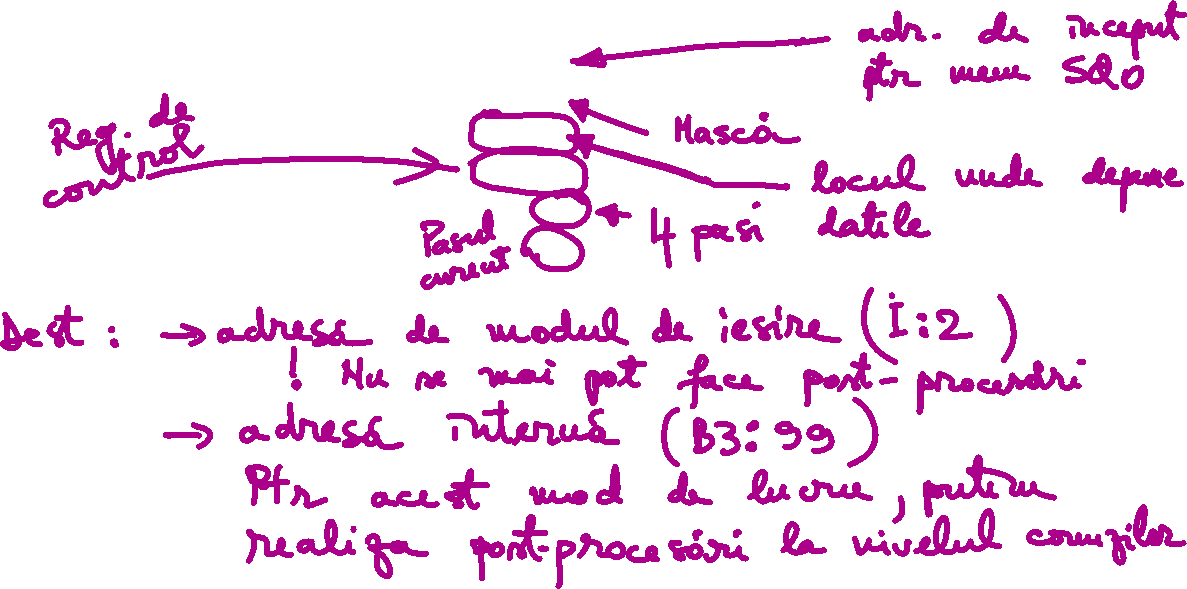 adr. de inceput
ptr mem SQO
Reg. de
control
Mască
locul unde depune
datile
4 pasi
Pasul
curent
Dest : → adresă de modul de iesire (I:2)
! Nu se mai pot face post-procesări
→ adresă internă (B3:99)
Ptr acest mod de lucru, putem
realiza post-procesări la nivelul comenzilor